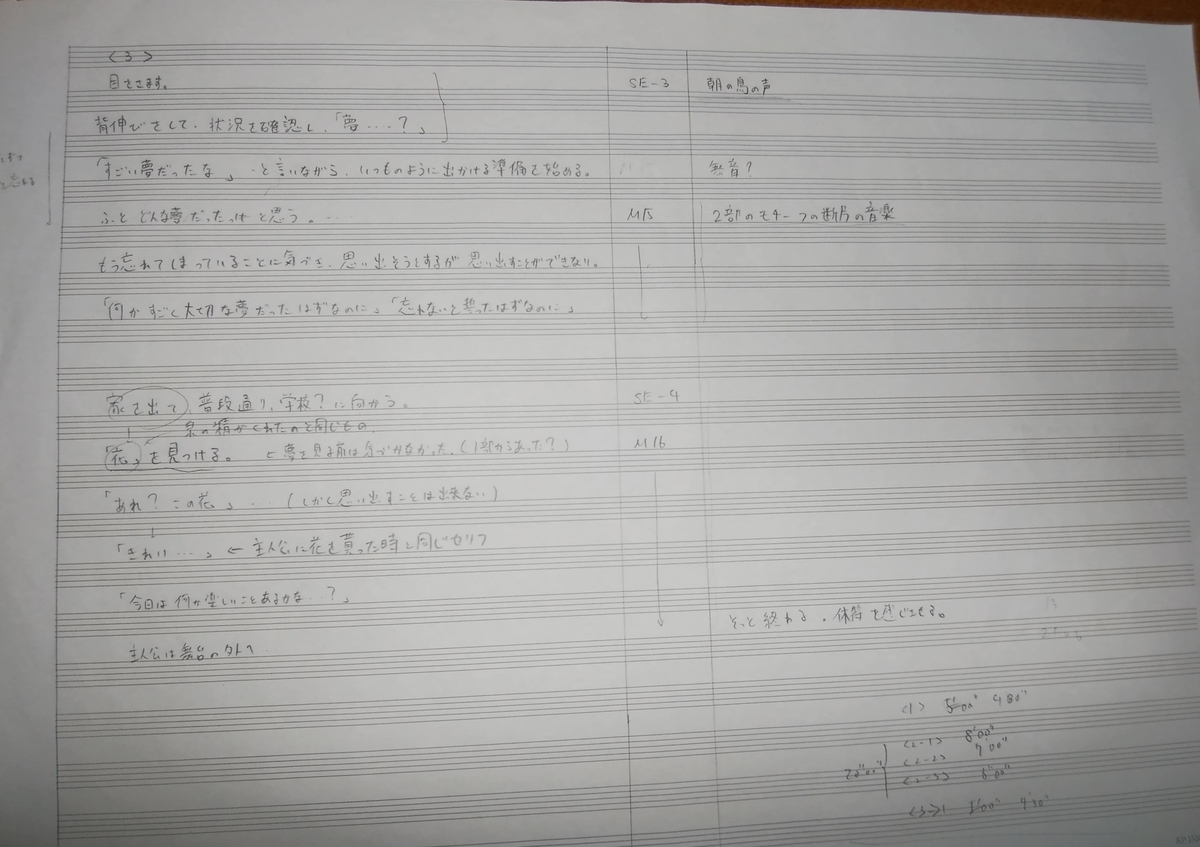 <3>
目をさます。 SE-3 朝の鳥の声
背伸びをして、状況を確認し、「夢....?」
「すごい夢だったな」 と言いながら、いつものように出かける準備を始める。 無音?
ふと どんな夢だったっけ と思う。... M15 2部のモチーフの断片の音楽
もう忘れてしまっていることに気づき、思い出そうとするが 思い出すことができない。
「何かすごく大切な夢だったはずなのに」「忘れないと誓ったはずなのに」
家を出て、普段通り、学校?に向かう。 SE-4
泉の精がくれたのと同じもの
「花」を見つける。 ←夢を見る前は気づかなかった。(1部からあった?) M16
「あれ? この花」... (しかし思い出すことは出来ない)
↓
「きれい...」 ← 主人公に花を貰った時と同じセリフ
「今日は何か楽しいことあるかな..?」
そっと終わる。余韻を感じさせる。
主人公は舞台の外へ
<1> 5'00" 4'30"
<2-1> 8'00"
<2-2> 7'00"
<2-3> 6'00"